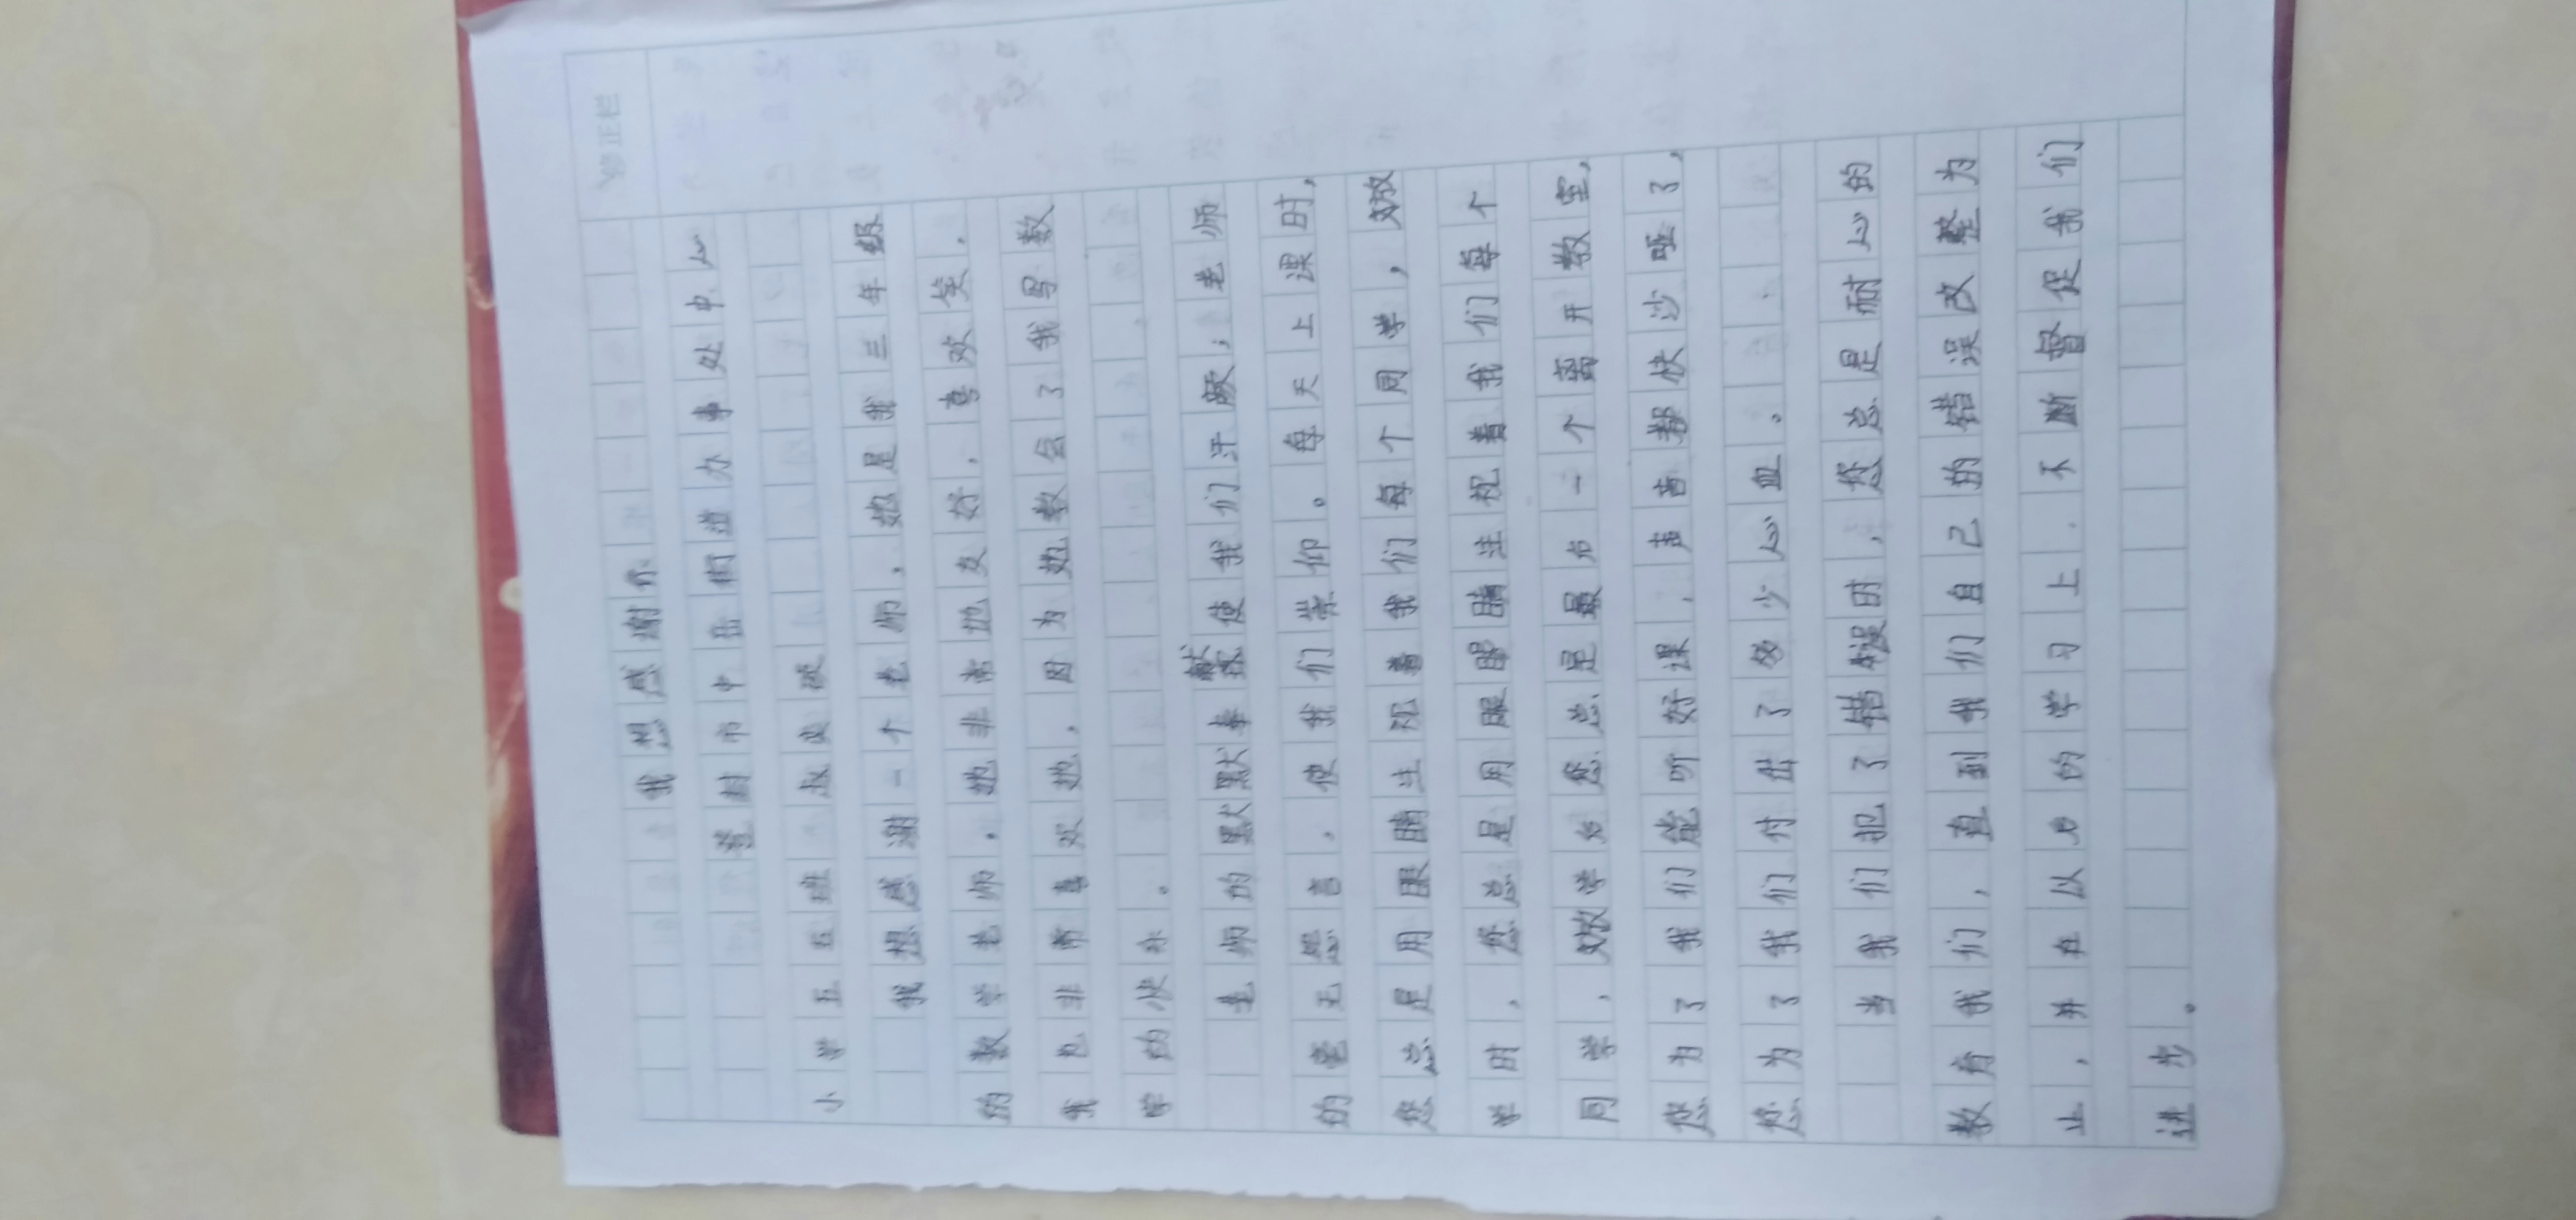 修正栏
我想感谢你
登封市中岳街道办事处中心
小学五五班
我想感谢一个老师,她是我三年级
的数学老师。她非常地友好,喜欢笑,
我也非常喜欢她,因为她教会了我写数
学的快乐。
老师的默默奉献使我们汗颜,老师
的毫无怨言,使我们崇仰。每天上课时,
您总是用眼睛注视着我们每个同学,放
学时,您总是用眼睛注视着我们每个
同学,放学为您总是最为一个离开教室,
您为了我们能听好课,声音都快沙哑了,
您为了我们付出了多少心血。
当我们犯了错误时,您总是耐心的
教育我们,直到我们自己的错误改整为
止,并在以后的学习上,不断督促我们
进步。